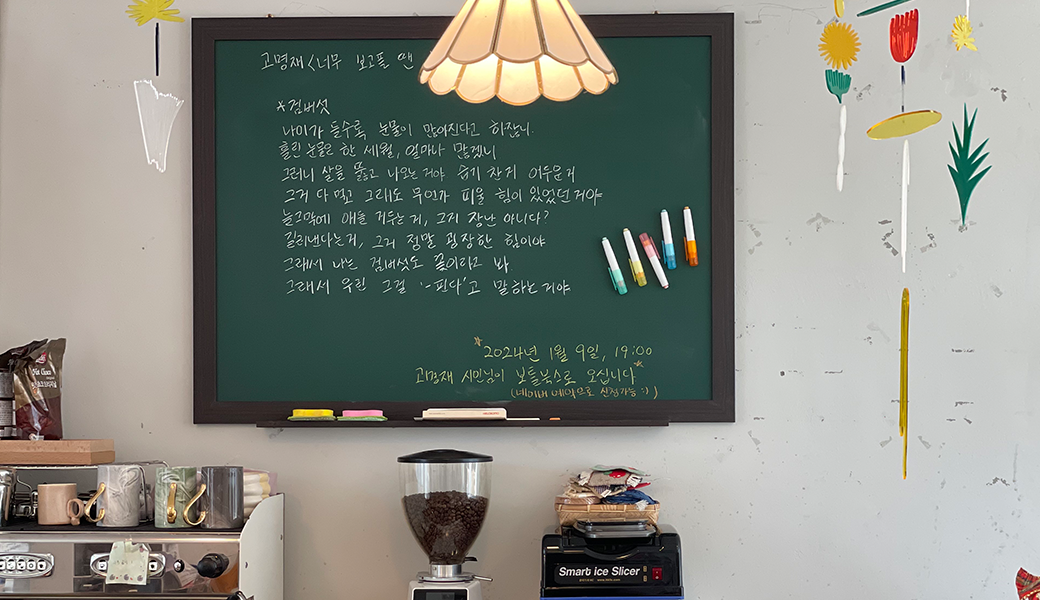 고명재 <너무 보고플 땐
*검버섯
나이가 들수록 눈물이 많아진다고 하잖니.
흘린 눈물은 한 세월, 얼마나 많겠니
그러니 살을 뚫고 나오는거야 습기 찬 게 어두운 게
그거 다 먹고 그래도 무언가 피울 힘이 있었던거야
늘그막에 애를 키우는 거, 그게 장난 아니다?
길러낸다는 거, 그거 정말 굉장한 힘이야
그래서 나는 검버섯도 꽃이라고 봐
그래서 우린 그걸 '-핀다'고 말하는거야
*2024년 1월 9일, 19:00
고명재 시인님이 보틀북스로 오십니다*
(네이버 예약으로 신청가능 :))
Smart ice Slicer